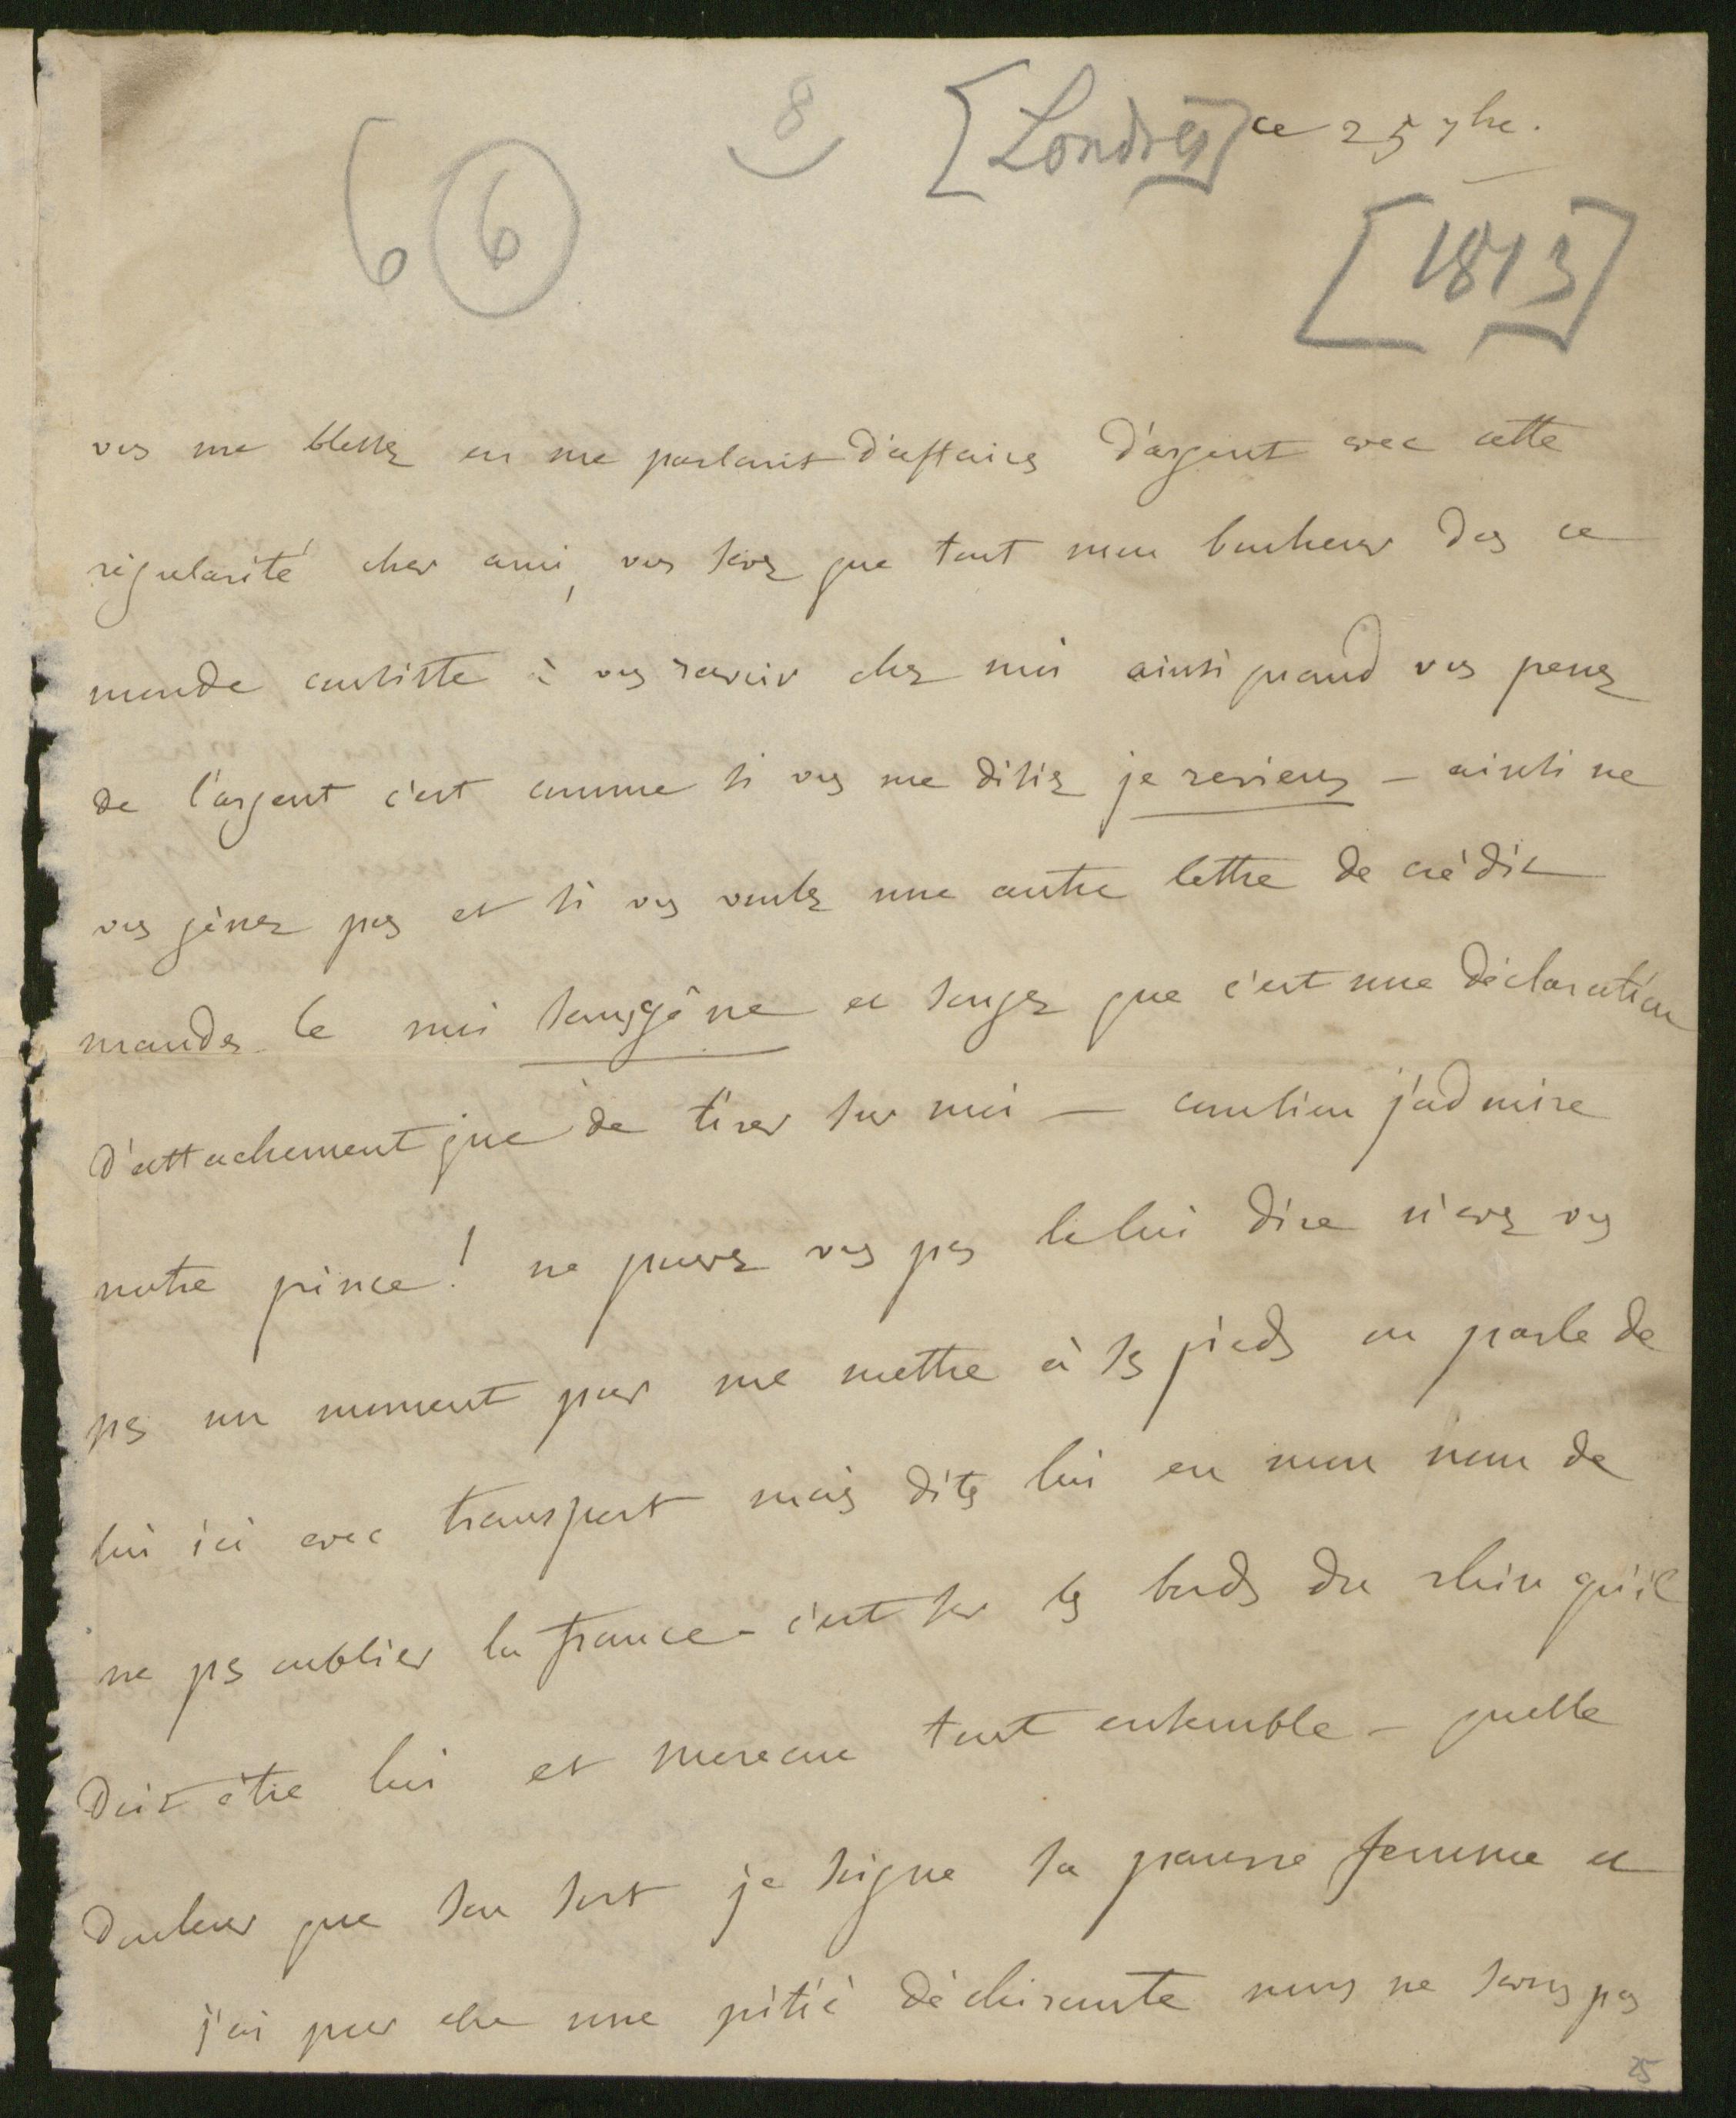 8
[Londres] ce 25 7bre.
6 6
[1813]
vos me blessez en me parlant d'affaires d'argent avec cette
régularité cher ami, vos savez que tout mon bonheur ds ce
monde consiste à vos revoir chez moi ainsi quand vos prenez
de l'argent c'est comme si vos me disiez je reviens – ainsi ne
vos gênez pas et si vos voulez une autre lettre de crédit
mandez le moi sans gêne et songez que c'est une déclaration
d'attachement que de tirer sur moi — combien j'admire
notre prince! ne pouvez vos pas le lui dire n'avez vos
ps un moment pour me mettre à ss pieds on parle de
lui ici avec transport mais dites lui en mon nom de
ne ps oublier la france – c'est sur ls bords du rhin qu'il
doit être lui et moreau tout ensemble – quelle
douleur que son sort je soigne sa pauvre femme et
j'ai pour elle une pitié déchirante nous ne savons pas
25